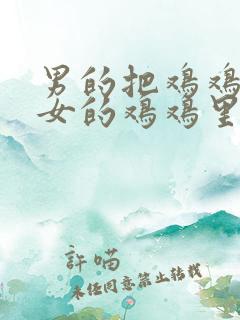 男的把鸡鸡
女的鸡鸡里
許喵
未经同意禁止转载